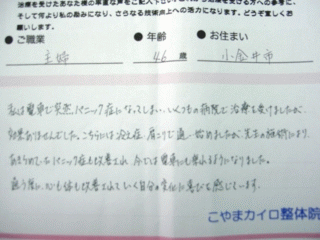 治療を受けたあなた様の率直な声をご記入下さい
そして何より私の励みになり、さらなる技術向上への活力になります。どうぞ宜しくお
願いします。
●ご職業 ●年齢 ●お住まい
主婦 46歳 小金井市
私は電車で突然パニック症になってしまい、いくつもの病院で治療を受けましたが、
効果ありませんでした。こちらには冷え症、肩こりで通い始めましたが、先生の施術により、
あきらめていたパニック症も改善され、今では電車にも乗れるようになりました。
通う度に、心も体も改善されていく自分の変化に喜びを感じています。
こやまカイロ整体院